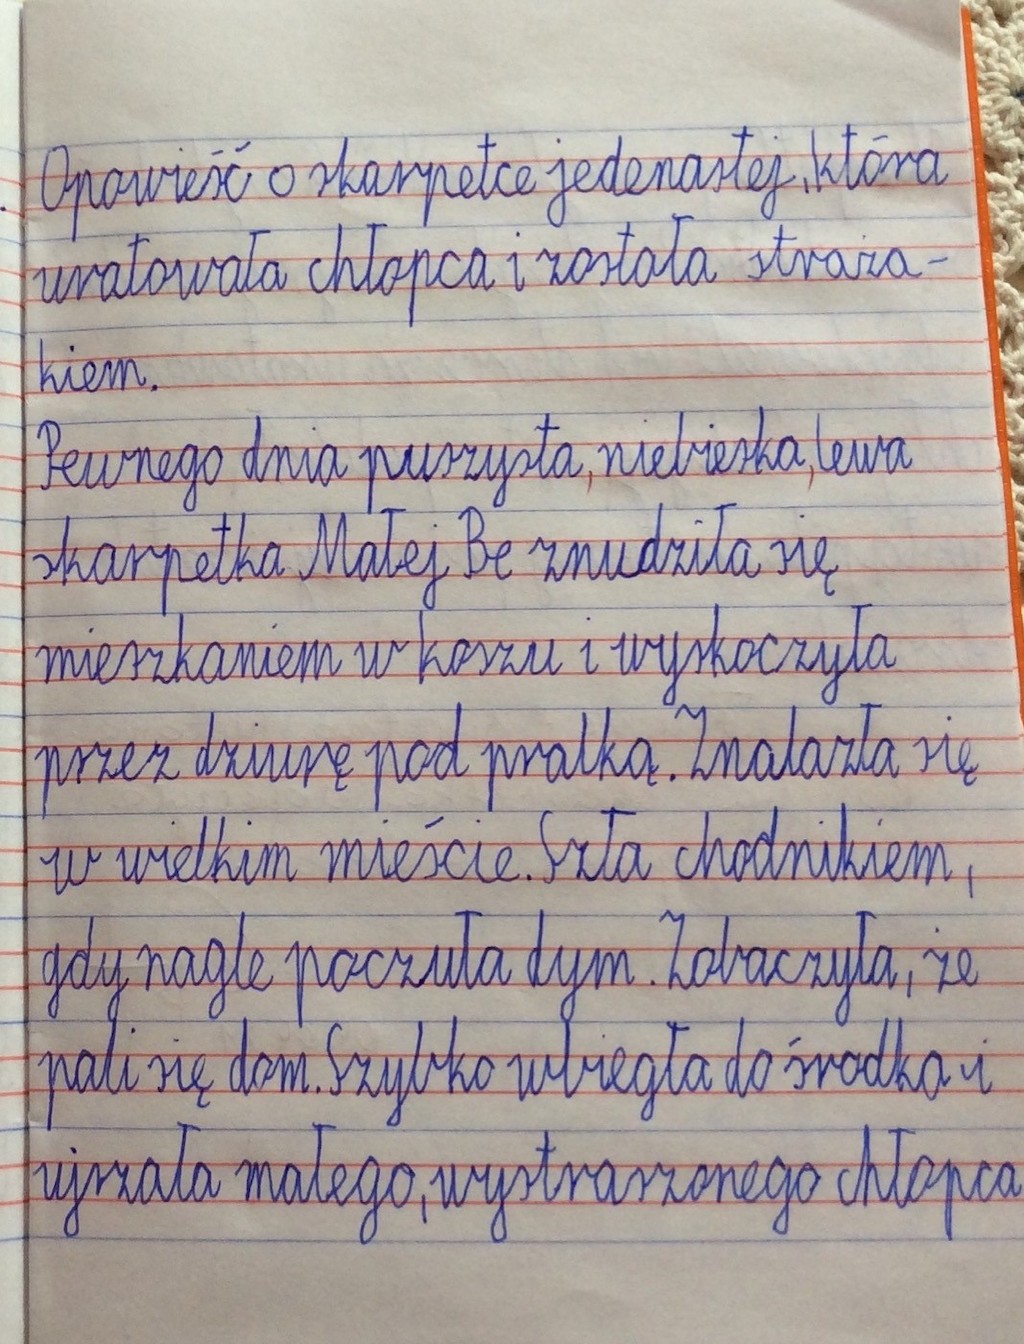 Opowieść o skarpetce jedenastej, która
uratowała chłopca i została straża-
kiem.
Pewnego dnia puszysta, niebieska, lewa
skarpetka Małej Be znudziła się
mieszkaniem w koszu i wyskoczyła
przez dziurę pod pralką. Znalazła się
w wielkim mieście. Szła chodnikiem,
gdy nagle poczuła dym. Zobaczyła, że
pali się dom. Szybko wbiegła do środka i
ujrzała małego, wystraszonego chłopca